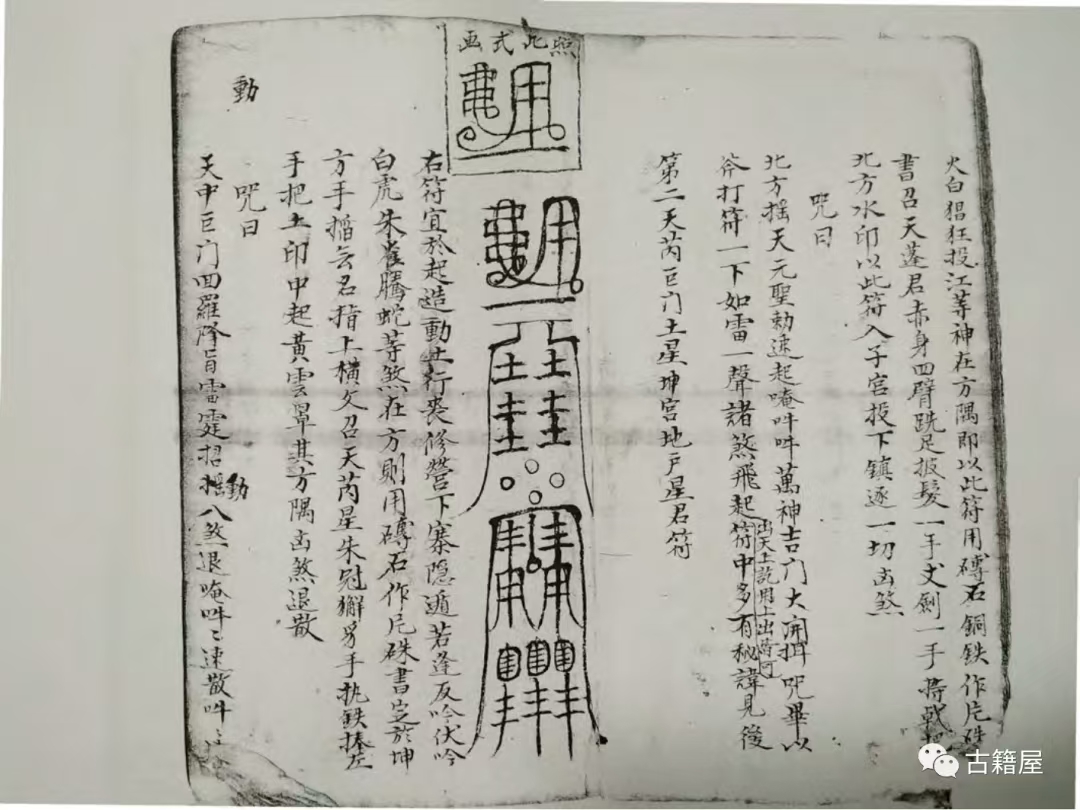 火白猖狂投江等神在方隅即以此符用磚石銅鉄作片硃
書召天蓬君赤身四臂跣足披髮一手丈劍一手持戟
北方水印以此符入子宮投下鎮逐一切凶煞
咒曰
北方搖天元聖勅速起唵吽吽萬神吉門大開揖咒畢以
斧打符一下如雷一聲諸煞飛起符中多有秘諱見後
第二天芮巨門土星坤宮地戶星君符
照此式画
右符宜於起造動土行丧修營下寨隱遁若逢反吟伏吟
白虎朱雀騰蛇等煞在方則用磚石作片硃書定於坤
方手掐云君指上橫文召天芮星朱冠獬豸手执鉄捧左
手把土印中起黃雲罩其方隅凶煞退散
動
咒曰
天中巨门回羅降旨雷霆招搖動八煞退唵吽〻速散吽
古籍屋